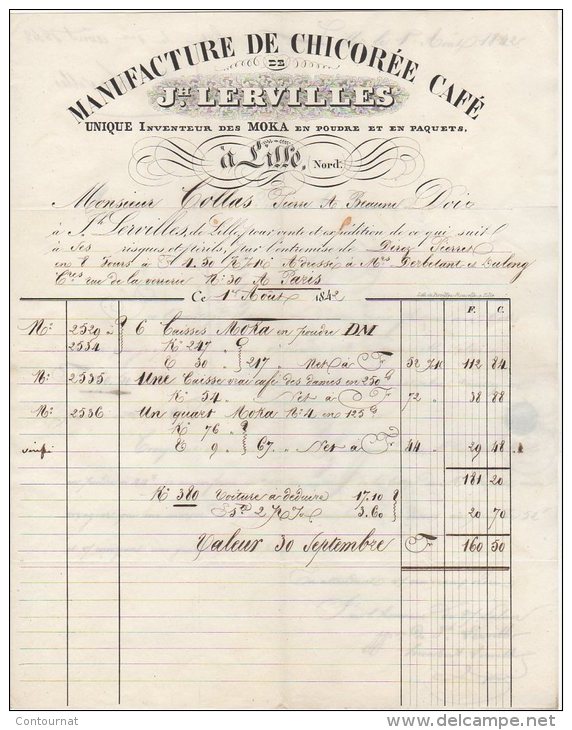 MANUFACTURE DE CHICORÉE CAFÉ
DE
JH LERVILLES
UNIQUE INVENTEUR DES MOKA EN POUDRE ET EN PAQUETS,
à Lille, Nord.
Monsieur Collas Pierre A Beaune Doit
à Jh Lervilles, de Lille, pour vente et expédition de ce qui suit
à ses risques et périls, par l'entremise de Pierre
en 8 Jours à F 4.50 Adressé à Mrs
rue de la verrerie No 30 A Paris
Ce 1er Août 1842
F. C.
No 2529 à 6 Caisses Moka en poudre DM
2534 K. 247
T 30 217 Net à F 52 112 84
No 2535 Une Caisse vrai café des dames en 250 g
K. 54 Net à F 72 38 88
No 2536 Un quart Moka No 4 en 125 g
K 76
T 9 67 Net à F 44 29 48
181 20
K. 380 Voiture à déduire 17.10
3.60 20 70
Valeur 30 Septembre F 160 50
Contournat
www.delcampe.net